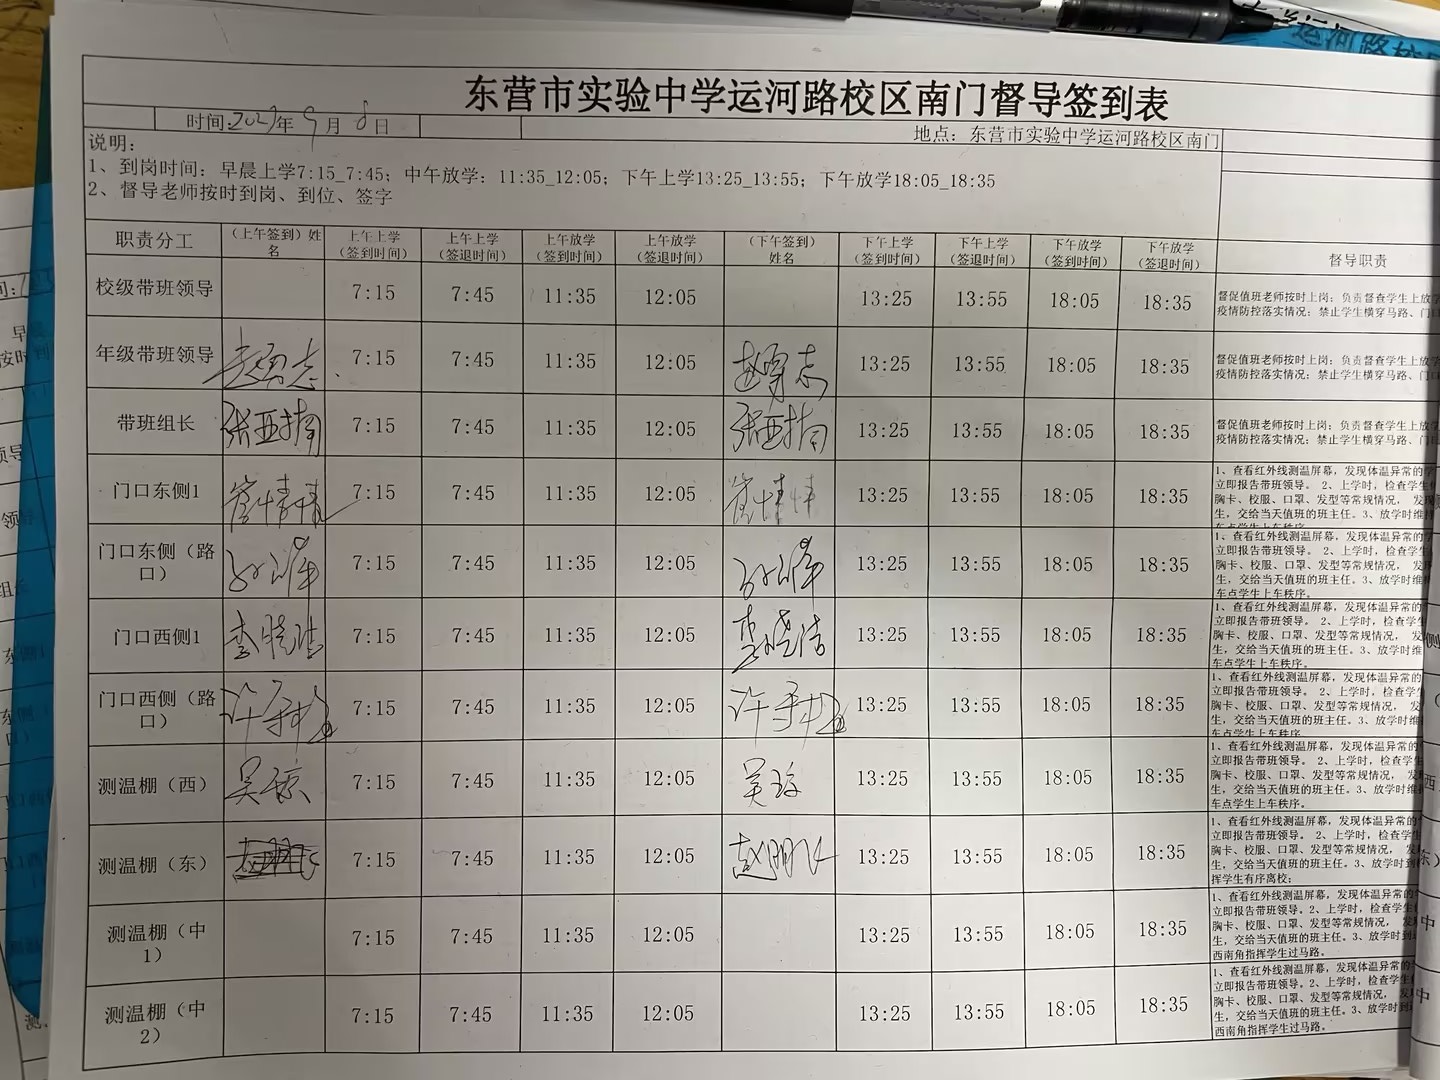 东营市实验中学运河路校区南门督导签到表
时间: 年 9 月 8 日
地点：东营市实验中学运河路校区南门
说明：
1、到岗时间：早晨上学7:15_7:45；中午放学：11:35_12:05；下午上学13:25_13:55；下午放学18:05_18:35
2、督导老师按时到岗、到位、签字
职责分工 （上午签到）姓名 上午上学（签到时间） 上午上学（签退时间） 上午放学（签到时间） 上午放学（签退时间） （下午签到）姓名 下午上学（签到时间） 下午上学（签退时间） 下午放学（签到时间） 下午放学（签退时间） 督导职责
校级带班领导 7:15 7:45 11:35 12:05 13:25 13:55 18:05 18:35
督促值班老师按时上岗；负责督查学生上放学
疫情防控落实情况；禁止学生横穿马路、门口
年级带班领导 7:15 7:45 11:35 12:05 13:25 13:55 18:05 18:35
督促值班老师按时上岗；负责督查学生上放学
疫情防控落实情况；禁止学生横穿马路、门口
带班组长 张亚楠 7:15 7:45 11:35 12:05 张亚楠 13:25 13:55 18:05 18:35
督促值班老师按时上岗；负责督查学生上放学
疫情防控落实情况；禁止学生横穿马路、门口
门口东侧1 7:15 7:45 11:35 12:05 13:25 13:55 18:05 18:35
1、查看红外线测温屏幕，发现体温异常的学
立即报告带班领导。 2、上学时，检查学生
胸卡、校服、口罩、发型等常规情况， 发现
生，交给当天值班的班主任。3、放学时维
车点学生上车秩序。
门口东侧（路口） 7:15 7:45 11:35 12:05 13:25 13:55 18:05 18:35
1、查看红外线测温屏幕，发现体温异常的学
立即报告带班领导。 2、上学时，检查学生
胸卡、校服、口罩、发型等常规情况， 发
生，交给当天值班的班主任。3、放学时维
车点学生上车秩序。
门口西侧1 李晓洁 7:15 7:45 11:35 12:05 李晓洁 13:25 13:55 18:05 18:35
1、查看红外线测温屏幕，发现体温异常的
立即报告带班领导。 2、上学时，检查学生
胸卡、校服、口罩、发型等常规情况， 发
生，交给当天值班的班主任。3、放学时维
车点学生上车秩序。
门口西侧（路口） 7:15 7:45 11:35 12:05 13:25 13:55 18:05 18:35
1、查看红外线测温屏幕，发现体温异常的
立即报告带班领导。 2、上学时，检查学
胸卡、校服、口罩、发型等常规情况， 发
生，交给当天值班的班主任。3、放学时维
车点学生上车秩序。
测温棚（西） 吴琼 7:15 7:45 11:35 12:05 吴琼 13:25 13:55 18:05 18:35
1、查看红外线测温屏幕，发现体温异常的
立即报告带班领导。 2、上学时，检查学生
胸卡、校服、口罩、发型等常规情况， 发
生，交给当天值班的班主任。3、放学时维
车点学生上车秩序。
测温棚（东） 7:15 7:45 11:35 12:05 赵明飞 13:25 13:55 18:05 18:35
1、查看红外线测温屏幕，发现体温异常的
立即报告带班领导。 2、上学时，检查学
胸卡、校服、口罩、发型等常规情况， 发
生，交给当天值班的班主任。3、放学时到
挥学生有序离校；
测温棚（中1） 7:15 7:45 11:35 12:05 13:25 13:55 18:05 18:35
1、查看红外线测温屏幕，发现体温异常的
立即报告带班领导。2、上学时，检查学生
胸卡、校服、口罩、发型等常规情况， 发
生，交给当天值班的班主任。3、放学时到
西南角指挥学生过马路。
测温棚（中2） 7:15 7:45 11:35 12:05 13:25 13:55 18:05 18:35
1、查看红外线测温屏幕，发现体温异常的
立即报告带班领导。2、上学时，检查学生
胸卡、校服、口罩、发型等常规情况， 发
生，交给当天值班的班主任。3、放学时到
西南角指挥学生过马路。